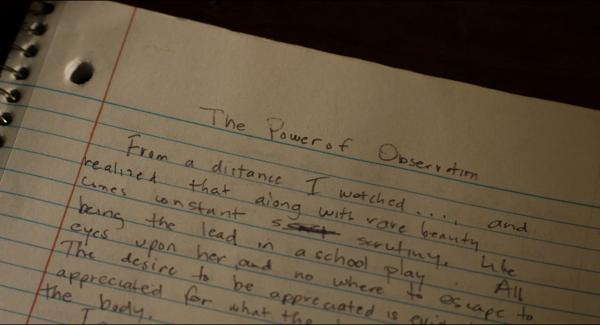 The Power of Observation
From a distance I watched.... and
realized that along with rare beauty
comes constant scrutiny. Like
being the lead in a school play. All
eyes upon her and no where to escape to
The desire to be appreciated is
appreciated for what the
the body.